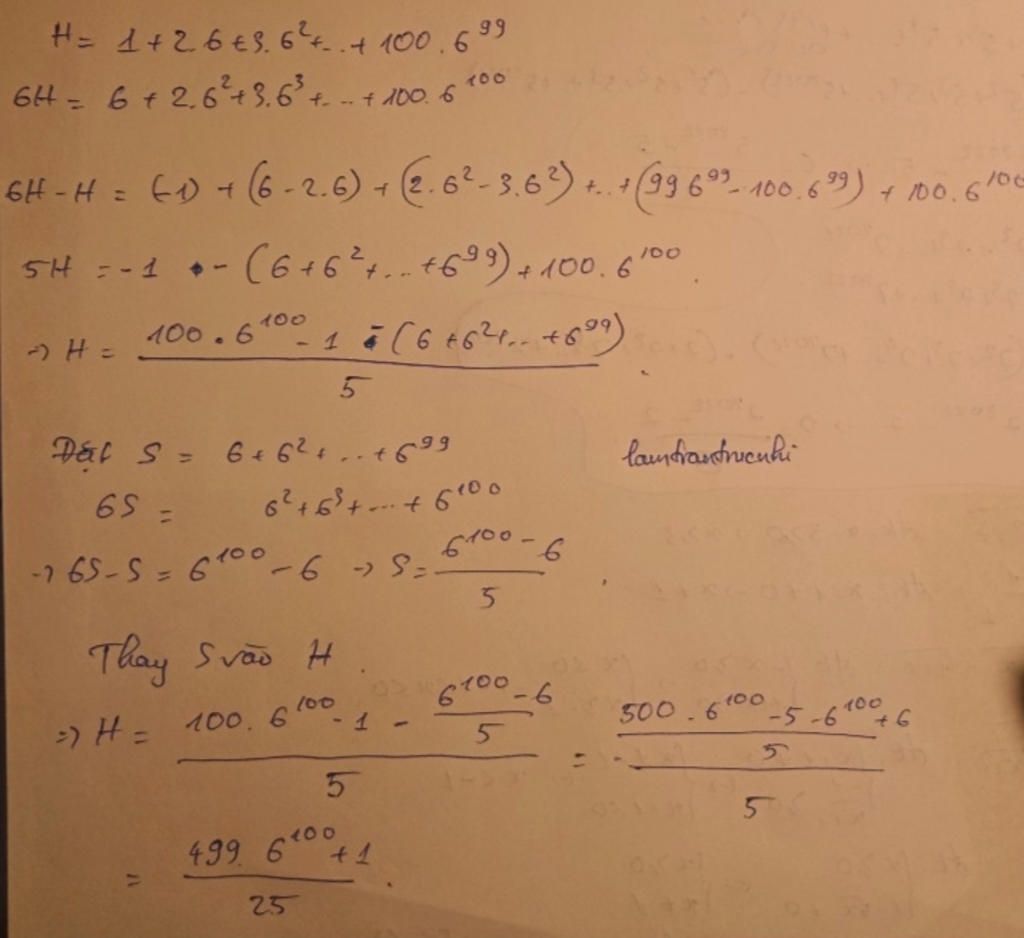 H = 1 + 2.6 + 3.6² + ... + 100.6⁹⁹
6H = 6 + 2.6² + 3.6³ + ... + 100.6¹⁰⁰
6H - H = (-1) + (6 - 2.6) + (2.6² - 3.6²) + ... + (99 6⁹⁹ - 100.6⁹⁹) + 100.6¹⁰⁰
5H = -1 - (6 + 6² + ... + 6⁹⁹) + 100.6¹⁰⁰.
→ H = (100.6¹⁰⁰ - 1 - (6 + 6² + ... + 6⁹⁹)) / 5.
Đặt S = 6 + 6² + ... + 6⁹⁹ lamtrantrucnhi
6S = 6² + 6³ + ... + 6¹⁰⁰
→ 6S - S = 6¹⁰⁰ - 6 → S = (6¹⁰⁰ - 6) / 5.
Thay S vào H.
⇒ H = (100.6¹⁰⁰ - 1 - (6¹⁰⁰ - 6) / 5) / 5 = ((500.6¹⁰⁰ - 5 - 6¹⁰⁰ + 6) / 5) / 5
= (499.6¹⁰⁰ + 1) / 25.